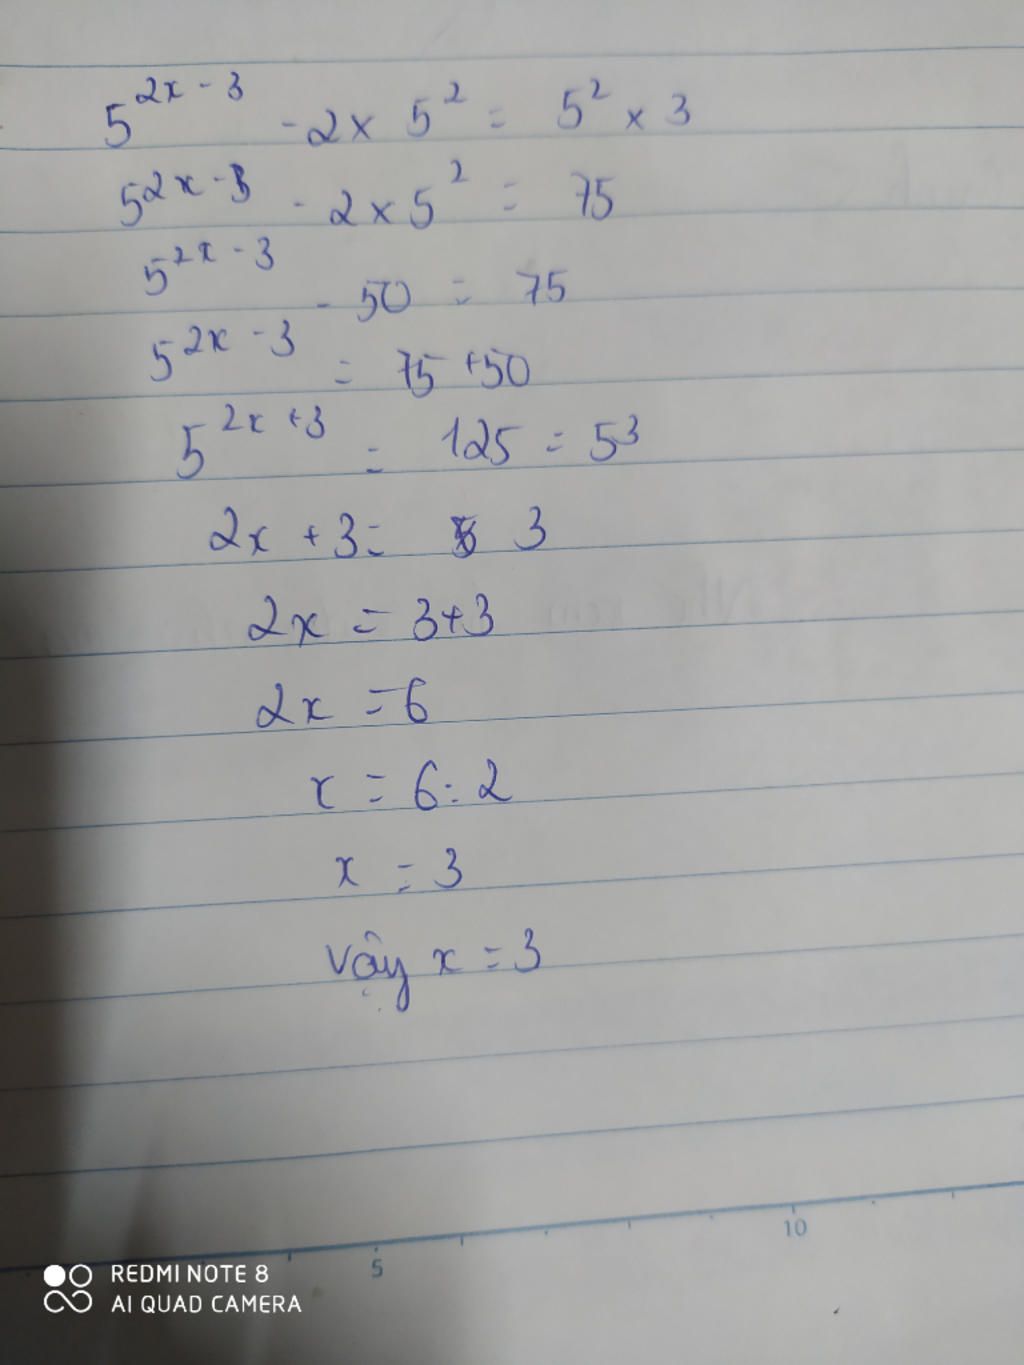 5^{2x - 3} - 2 x 5^2 = 5^2 x 3
5^{2x - 3} - 2 x 5^2 = 75
5^{2x - 3} - 50 = 75
5^{2x - 3} = 75 + 50
5^{2x + 3} = 125 = 5^3
2x + 3 = 3
2x = 3+3
2x = 6
x = 6 : 2
x = 3
Vậy x = 3
5 10
REDMI NOTE 8
AI QUAD CAMERA